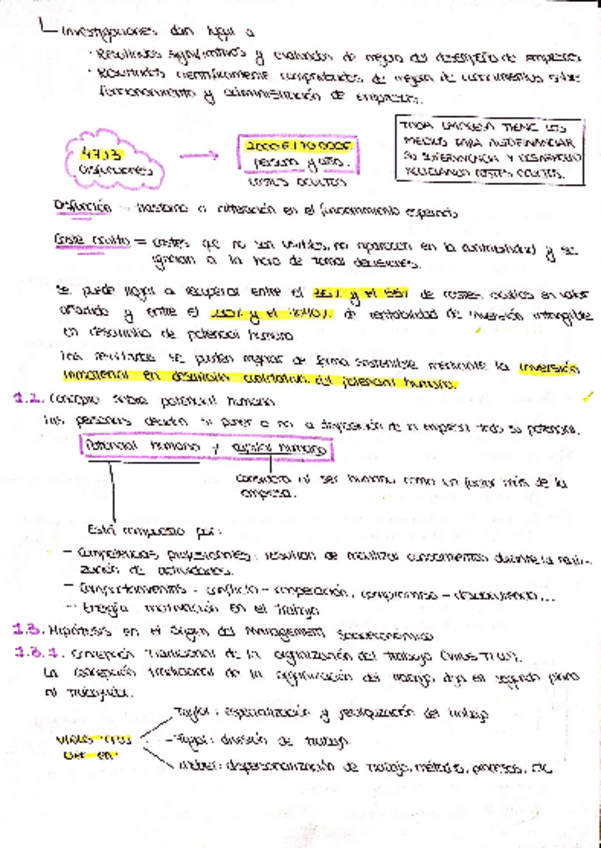 Investigaciones dan lugar a
· Resultados significativos y evaluados de mejora del desempeño de empresas
· Resultados científicamente comprobados de mejora de conocimientos sobre
funcionamiento y administración de empresas.
TODA EMPRESA TIENE LOS
MEDIOS PARA AUTOFINANCIAR
SU SUPERVIVENCIA Y DESARROLLO
RECICLANDO COSTES OCULTOS.
4713
disfunciones
persona y año.
COSTES OCULTOS
Disfunción trastorno o alteración en el funcionamiento esperado
Coste oculto = costes que no son visibles, no aparecen en la contabilidad y se
ignoran a la hora de tomar decisiones.
Se puede llegar a recuperar entre el 35% y el 55% de costes ocultos en valor
añadido y entre el y el de rentabilidad de inversión intangible
en desarrollo de potencial humano
Los resultados se pueden mejorar de forma sostenible mediante la inversión
inmaterial en desarrollo cualitativo del potencial humano.
1.2. Concepto sobre potencial humano
Las personas deciden si poner o no a disposición de la empresa todo su potencial.
Potencial humano y capital humano
considera al ser humano como un factor más de la
empresa.
Está compuesto por:
- Competencias profesionales: resultan de movilizar conocimientos durante la reali-
zación de actividades.
- Comportamientos - conflicto - cooperación, compromiso - desobediencia...
- Energía motivación en el trabajo
1.3. Hipótesis en el Origen del Management Socioeconómico
1.3.1. Concepción Tradicional de la organización del trabajo (VIRUS TFW).
La concepción tradicional de la organización del trabajo, deja en segundo plano
al trabajador.
Taylor: especialización y del trabajo
VIRUS TFW
- Fayol: división de trabajo.
Weber: despersonalización de trabajo, métodos, procesos, etc